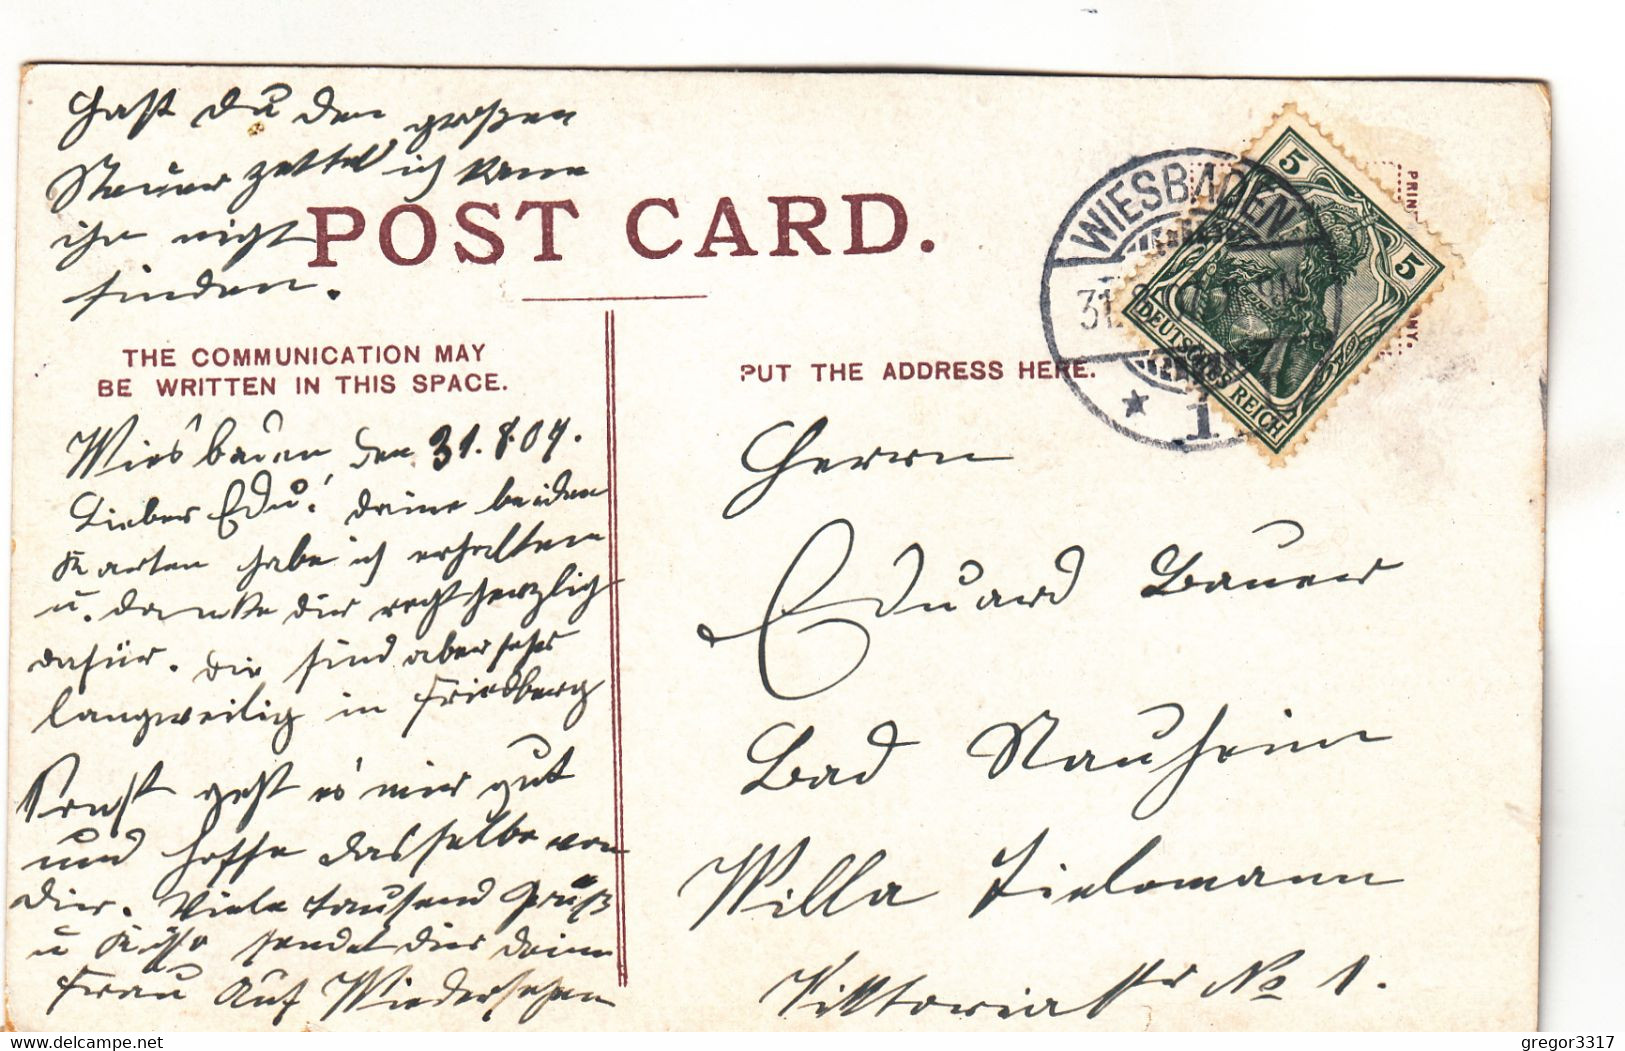 Hast du den großen
Steuerzettel ich kann
ihn nicht
finden.
POST CARD.
THE COMMUNICATION MAY
BE WRITTEN IN THIS SPACE.
PUT THE ADDRESS HERE.
Wiesbaden den 31.8.09.
Lieber Edu! deine beiden
Karten habe ich erhalten
u. danke dir recht herzlich
dafür. die sind aber sehr
langweilig in Friedberg
Sonst geht es mir gut
und hoffe dasselbe von
dir. Viele tausend Grüß
u Küsse sendet dir deine
Frau Auf Wiedersehen
Herrn
Eduard Bauer
Bad Nauheim
Willa
Viktoriastr No 1.
WIESBADEN
31.
* 1
5
5
DEUTSCHES REICH
PRIN
NY.
delcampe.net
gregor3317